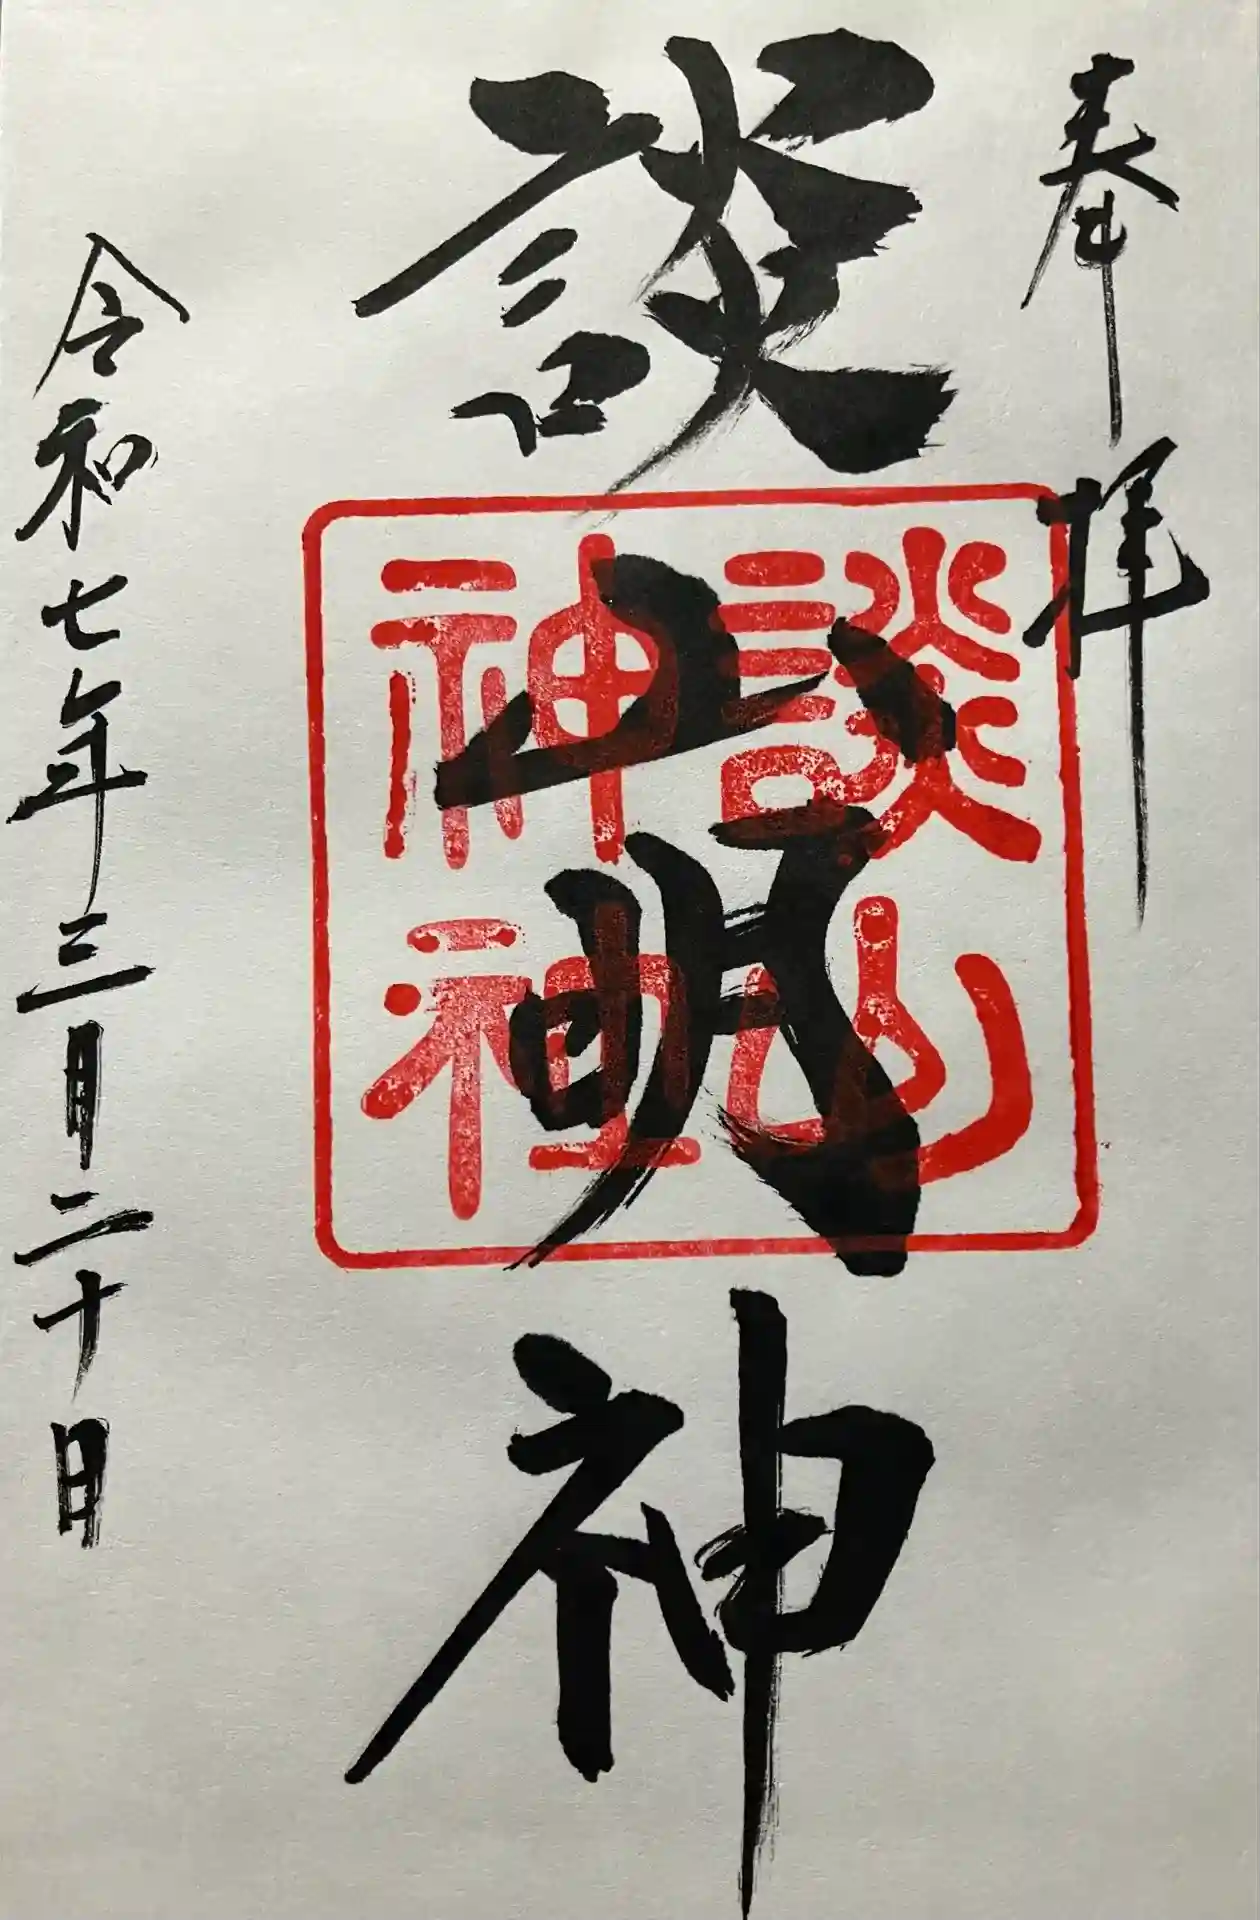 奉拝
談山明神
談山
神社
令和七年三月二十日